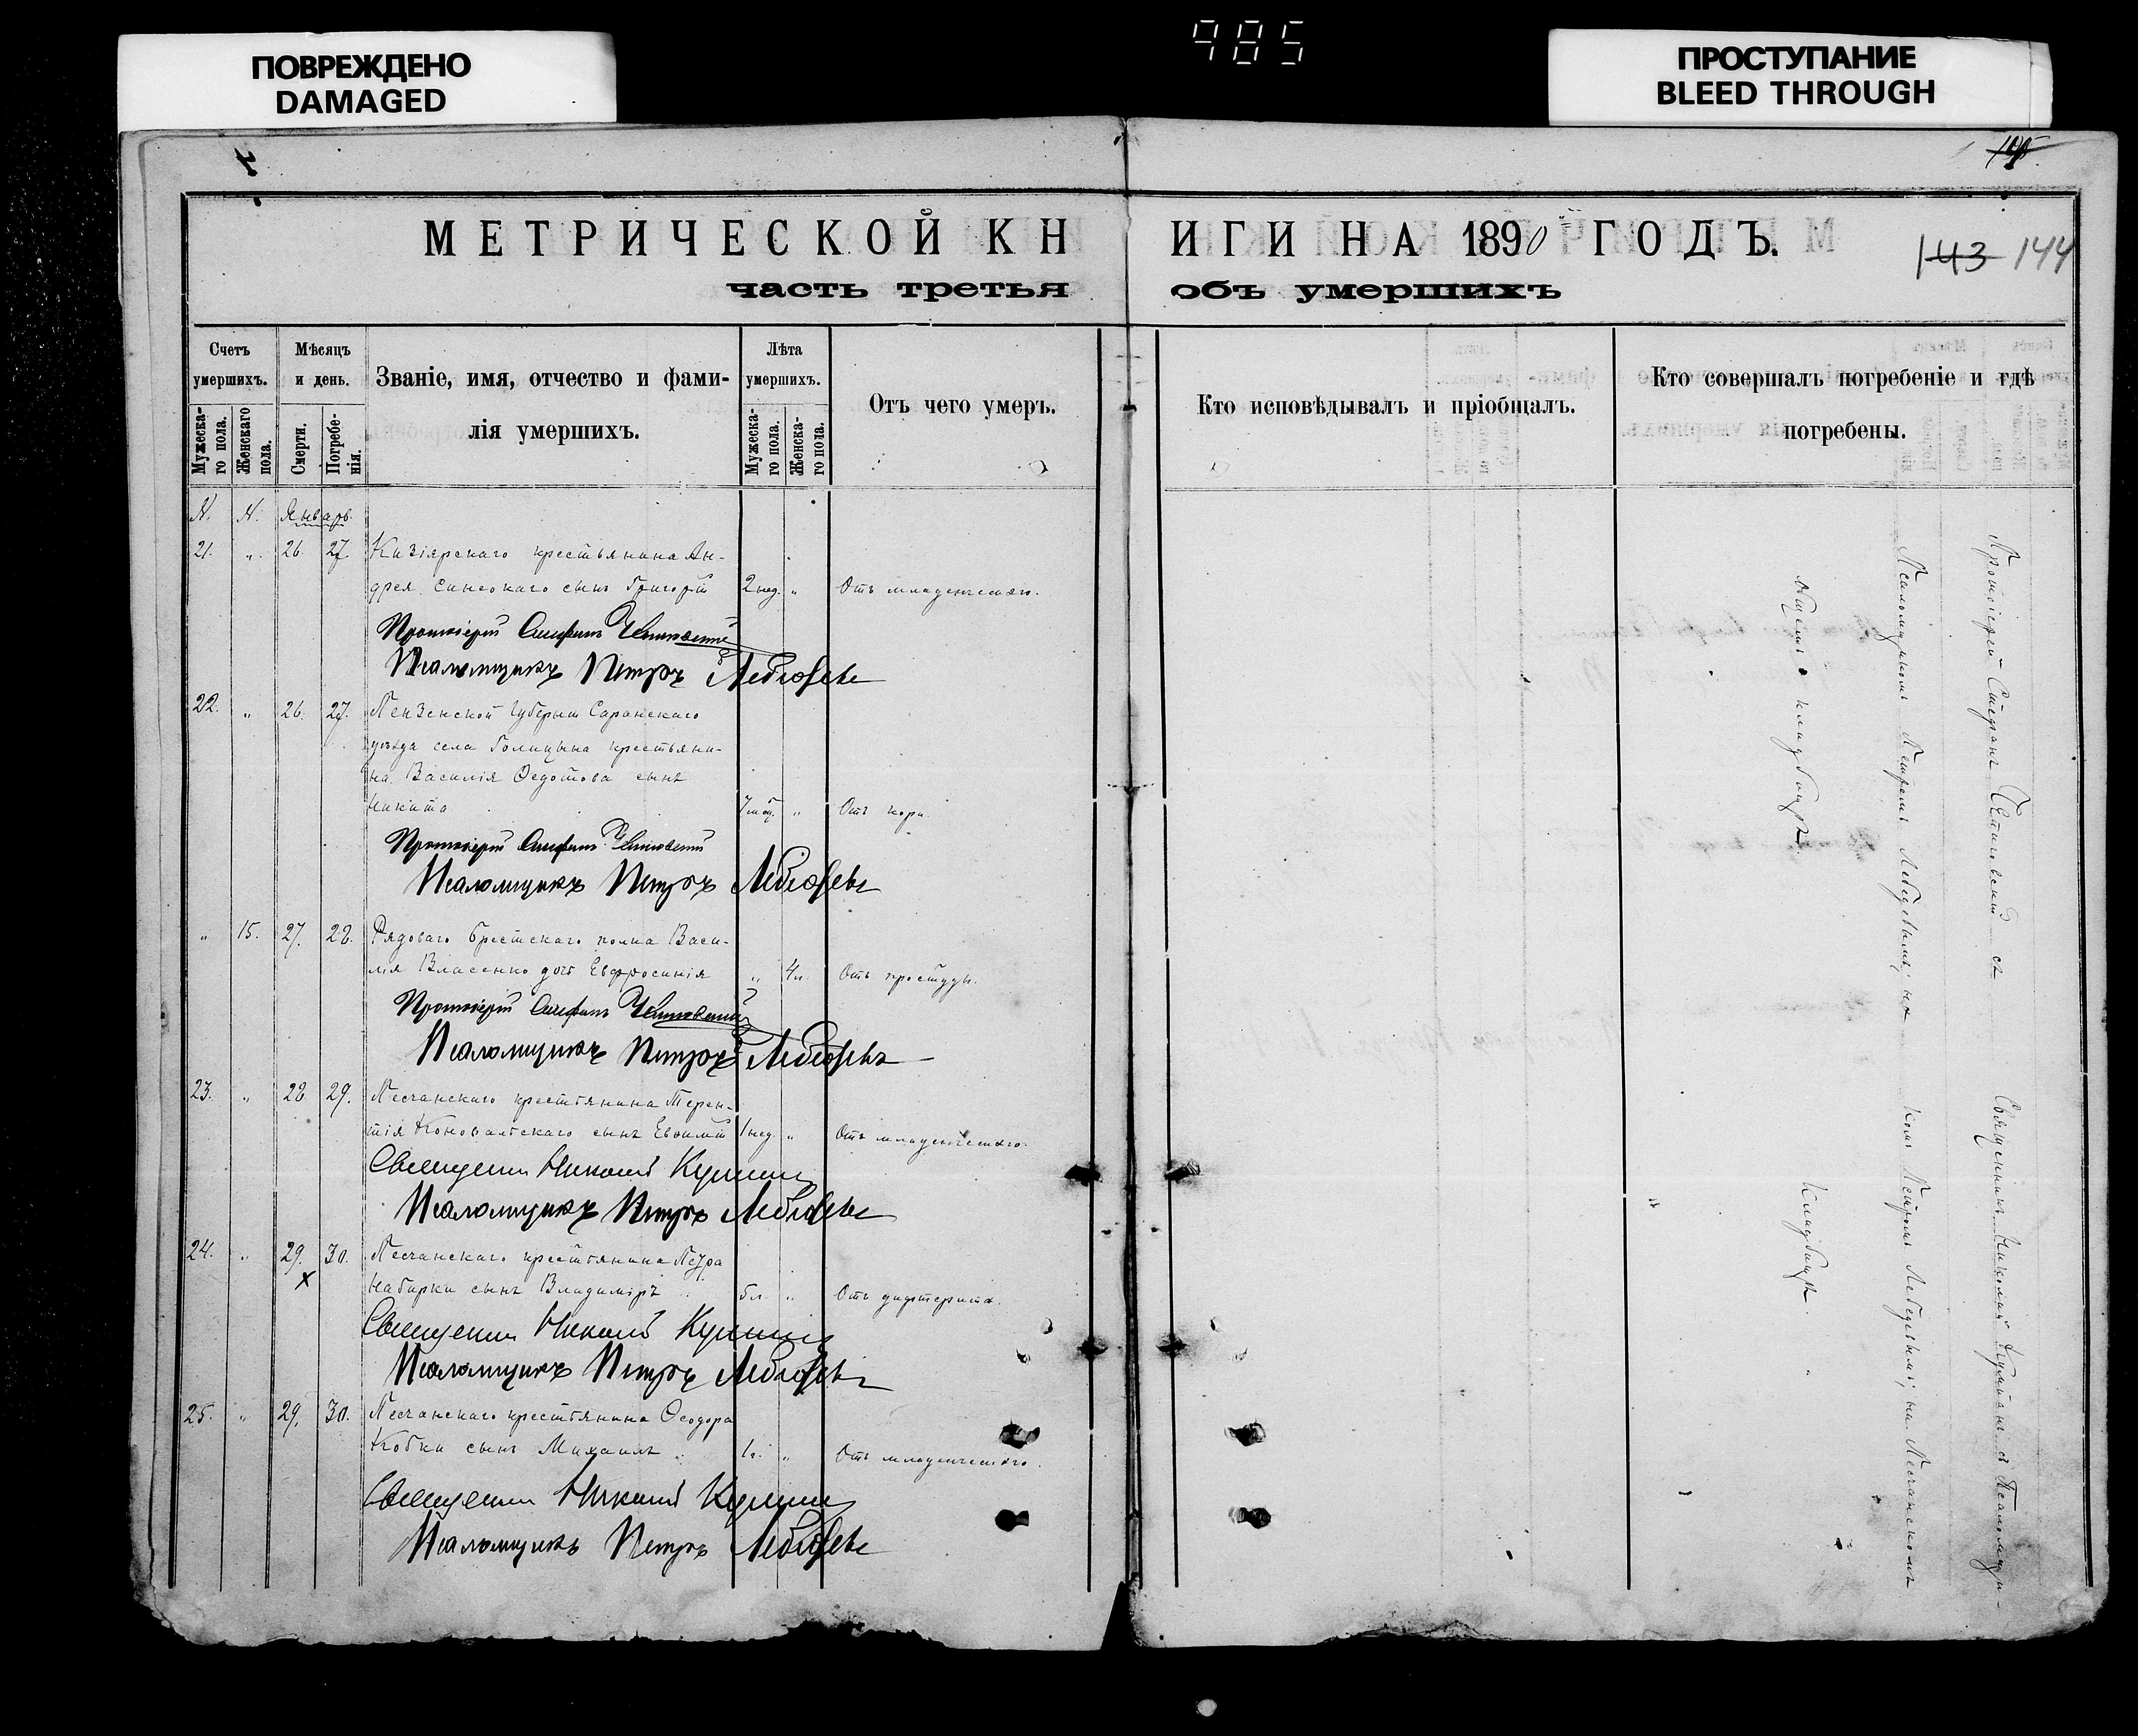 ПОВРЕЖДЕНО
DAMAGED
985
ПРОСТУПАНИЕ
BLEED THROUGH
МЕТРИЧЕСКОЙ КНИГИ НА 1890 ГОДЪ.
143 144
часть третья объ умершихъ
Счетъ умершихъ.
Мужеска-го пола.
Женскаго пола.
Мѣсяцъ и день.
Смерти.
Погребе-нія.
Званіе, имя, отчество и фами-
лія умершихъ.
Лѣта умершихъ.
Мужеска-го пола.
Женска-го пола.
Отъ чего умеръ.
Кто исповѣдывалъ и пріобщалъ.
Кто совершалъ погребеніе и гдѣ
погребены.
N. N. Январь.
21. „ 26. 27. крестьянина Ан-
дрея сынъ Григорій 2 нед. „ Отъ младенческаго.
Протоіерей
Псаломщикъ Петръ Лебедевъ
22. „ 26. 27. Пензенской губерніи Саранскаго
уѣзда села Голицына крестьяни-
на Василія Ѳедотова сынъ
Никита 7 мѣс. „ Отъ кори.
Протоіерей
Псаломщикъ Петръ Лебедевъ
„ 15. 27. 28. Рядоваго Брестскаго полка Васи-
лія Власенко дочь Евфросинія „ 4 л. Отъ простуды.
Протоіерей
Псаломщикъ Петръ Лебедевъ
23. „ 28. 29. Песчанскаго крестьянина Терен-
тія Коновальскаго сынъ Евѳимій 1 нед. „ Отъ младенческаго.
Священникъ Николай
Псаломщикъ Петръ Лебедевъ
24. „ 29. 30. Песчанскаго крестьянина Петра
Набирки сынъ Владиміръ 5 л. „ Отъ дифтерита.
Священникъ Николай
Псаломщикъ Петръ Лебедевъ
25. „ 29. 30. Песчанскаго крестьянина Ѳеодора
Кобки сынъ Михаилъ 1 г. „ Отъ младенческаго.
Священникъ Николай
Псаломщикъ Петръ Лебедевъ
Протоіерей Стефанъ съ
Псаломщикомъ Петромъ Лебедевымъ, на
кладбищѣ.
Священникъ Николай съ Псаломщи-
комъ Петромъ Лебедевымъ, на Песчанскомъ
кладбищѣ.